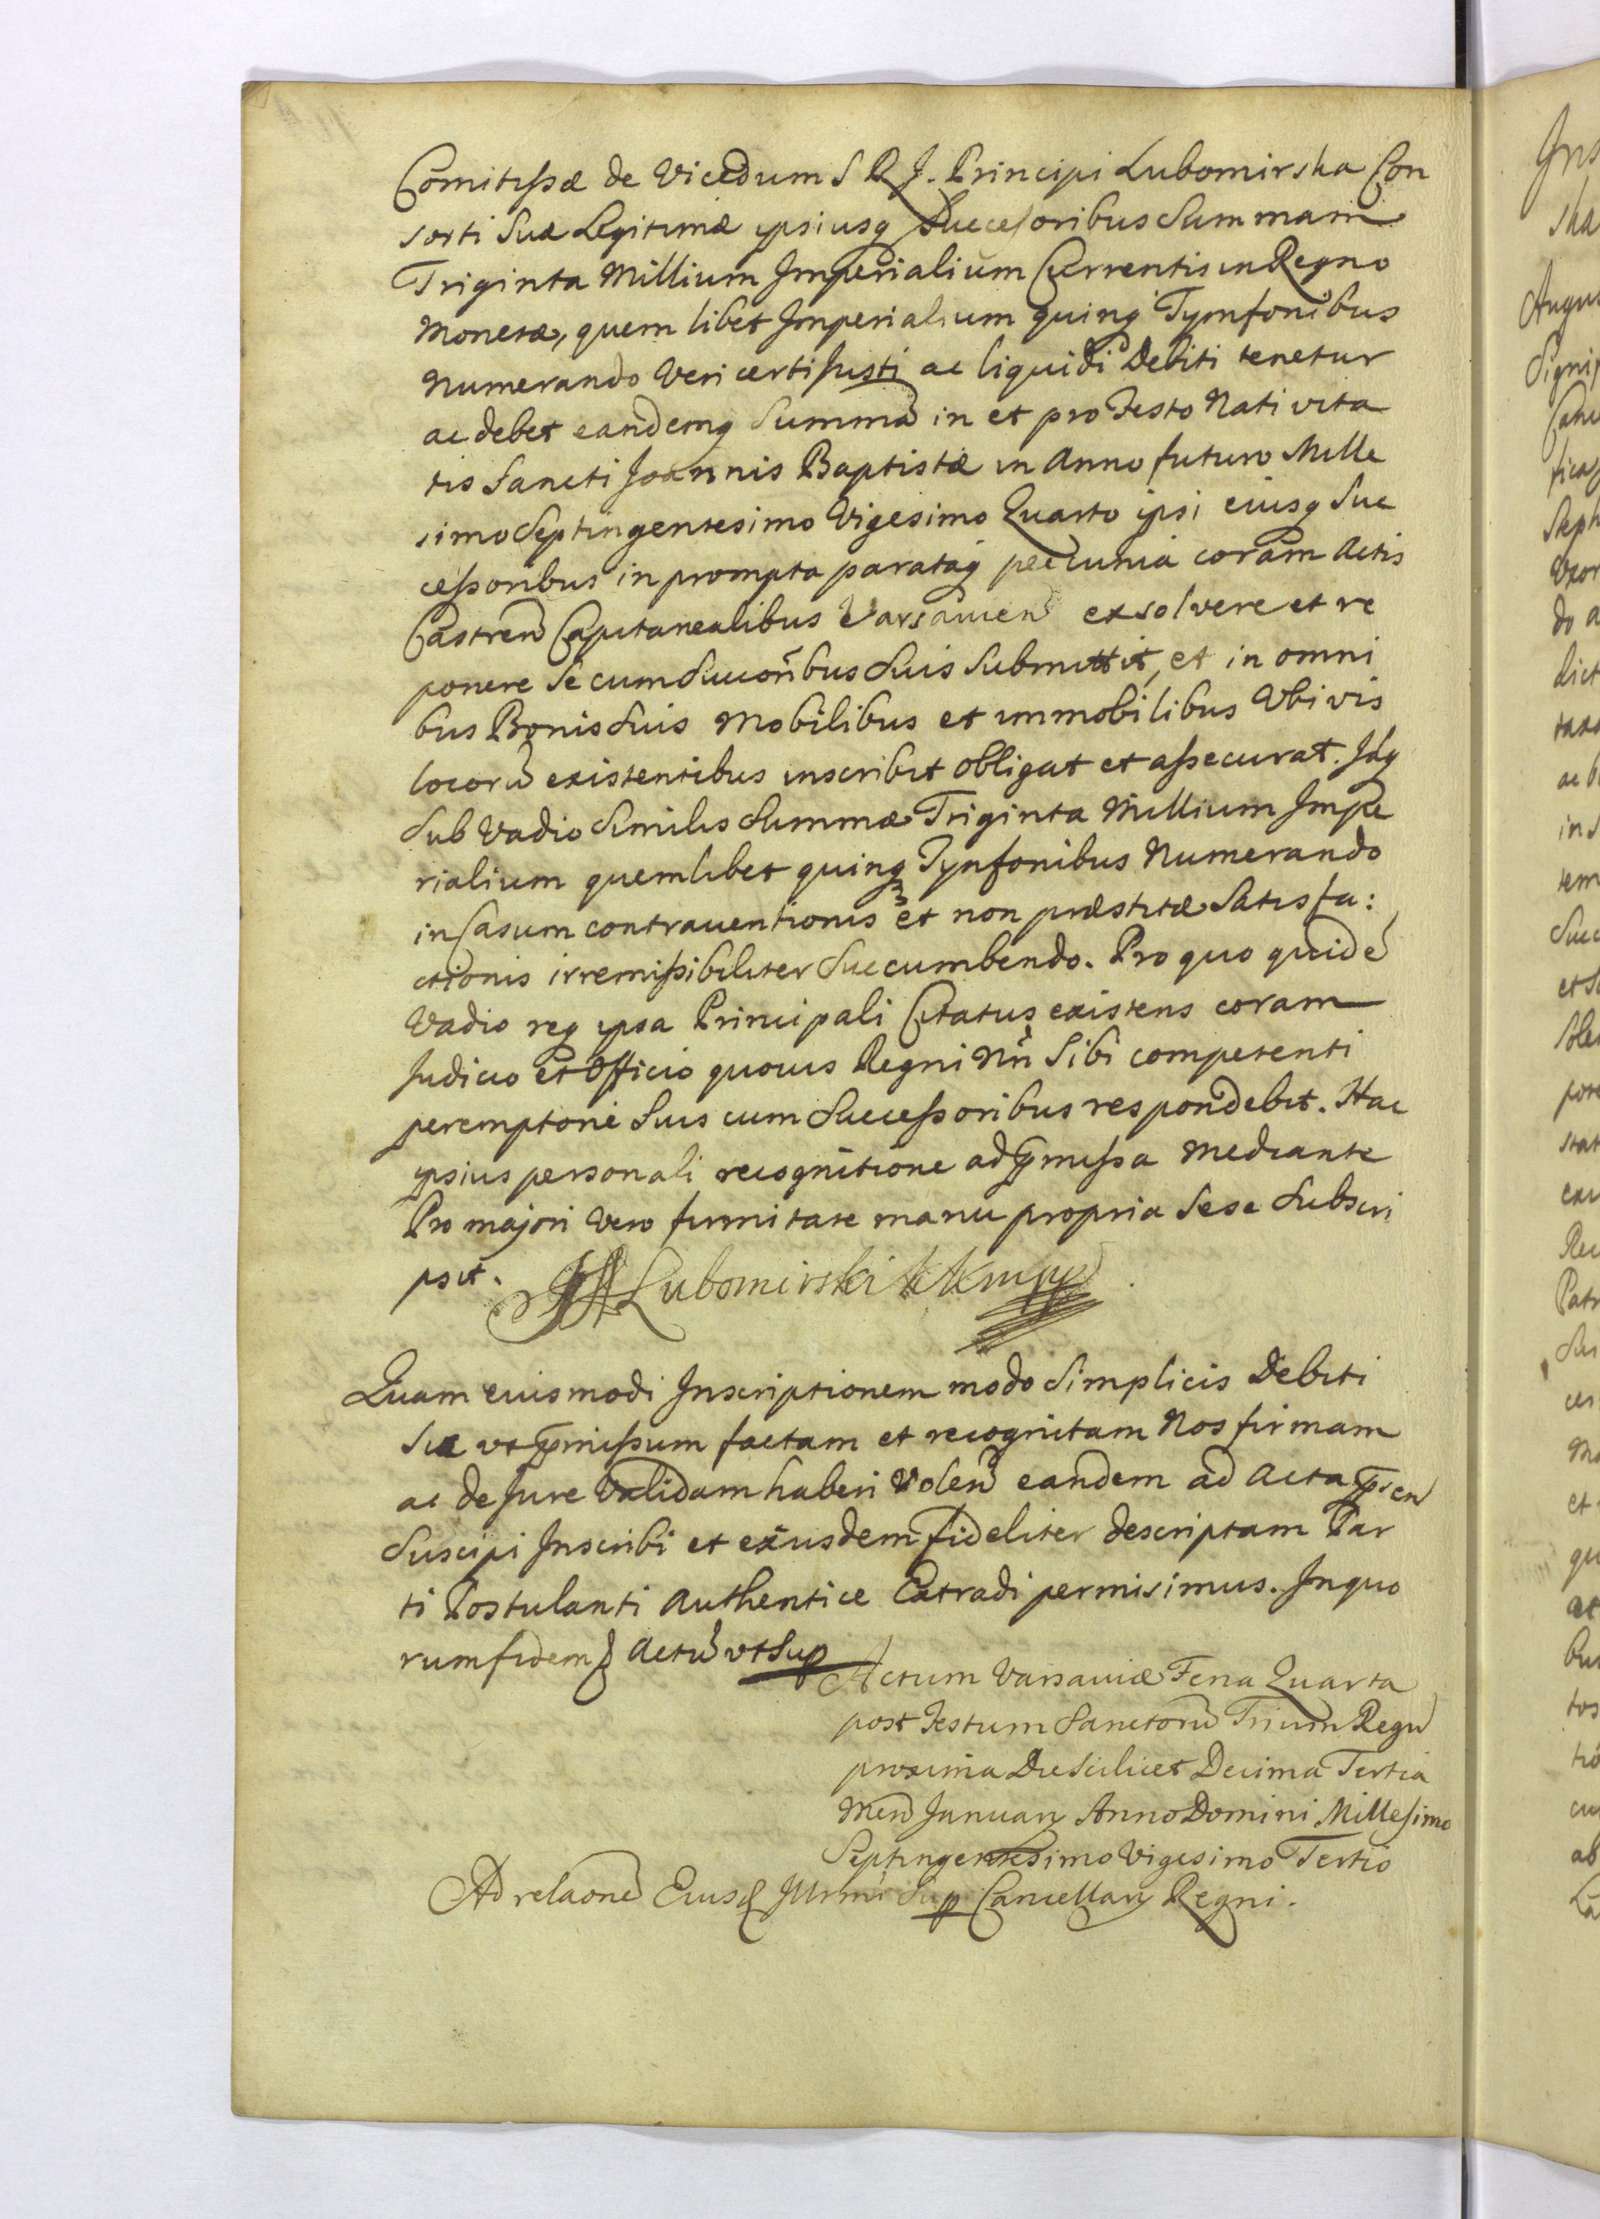 Comitissæ de Vicedum S R J. Principi Lubomirska Con
sorti Suæ Legitimæ ipsiusq Successoribus Summam
Triginta Millium Imperialium Currentis in Regno
Monetæ, quem libet Imperialium quinq Tymfonibus
Numerando Veri certi Justi ac liquidi Debiti tenetur
ac debet eandemq Summã in et pro Festo Nativita
tis Sancti Joannis Baptistæ in Anno futuro Mille
simo Septingentesimo Vigesimo Quarto ipsi eiusq Suc
cessoribus in prompta parataq peccunia coram Actis
Castren Capitanealibus Varsavien exsolvere et re
ponere Se cum Succoribus Suis Submittit, et in omni
bus Bonis Suis Mobilibus et immobilibus Ubivis
locorũ existentibus inscribit obligat et assecurat. Idq
Sub Vadio Similis Summæ Triginta Millium Impe
rialium quemlibet quinq Tynfonibus Numerando
in Casum contraventionis et non præstitæ Satisfa:
ctionis irremissibiliter Succumbendo. Pro quo quidẽ
Vadio req ipsa Principali Citatus existens coram
Judicio et Officio quovis Regni Nri Sibi competenti
peremptorie Suis cum Successoribus respondebit. Hac
ipsius personali recognitione ad pmissa mediante
Pro majori Vero firmitate manu propria Sese Subscri
psit. Lubomirski
Quam eiusmodi Inscriptionem modo Simplicis Debiti
Sic ut pmissum factam et recognitam Nos firmam
ac de Jure Validam haberi Volen eandem ad Acta psen
Suscipi Inscribi et exiusdem fideliter descriptam Par
ti Postulanti Authentice Extradi permisimus. In quo
rum fidem Actũ ut Sup
Actum Varsaviæ Feria Quarta
post Festum Sanctorũ Trium Regũ
proxima Die Scilicet Decima Tertia
Men Januarij Anno Domini Millesimo
Septingentesimo Vigesimo Tertio
Ad relaone Eiusd Illrmi Sup Cancellarij Regni.